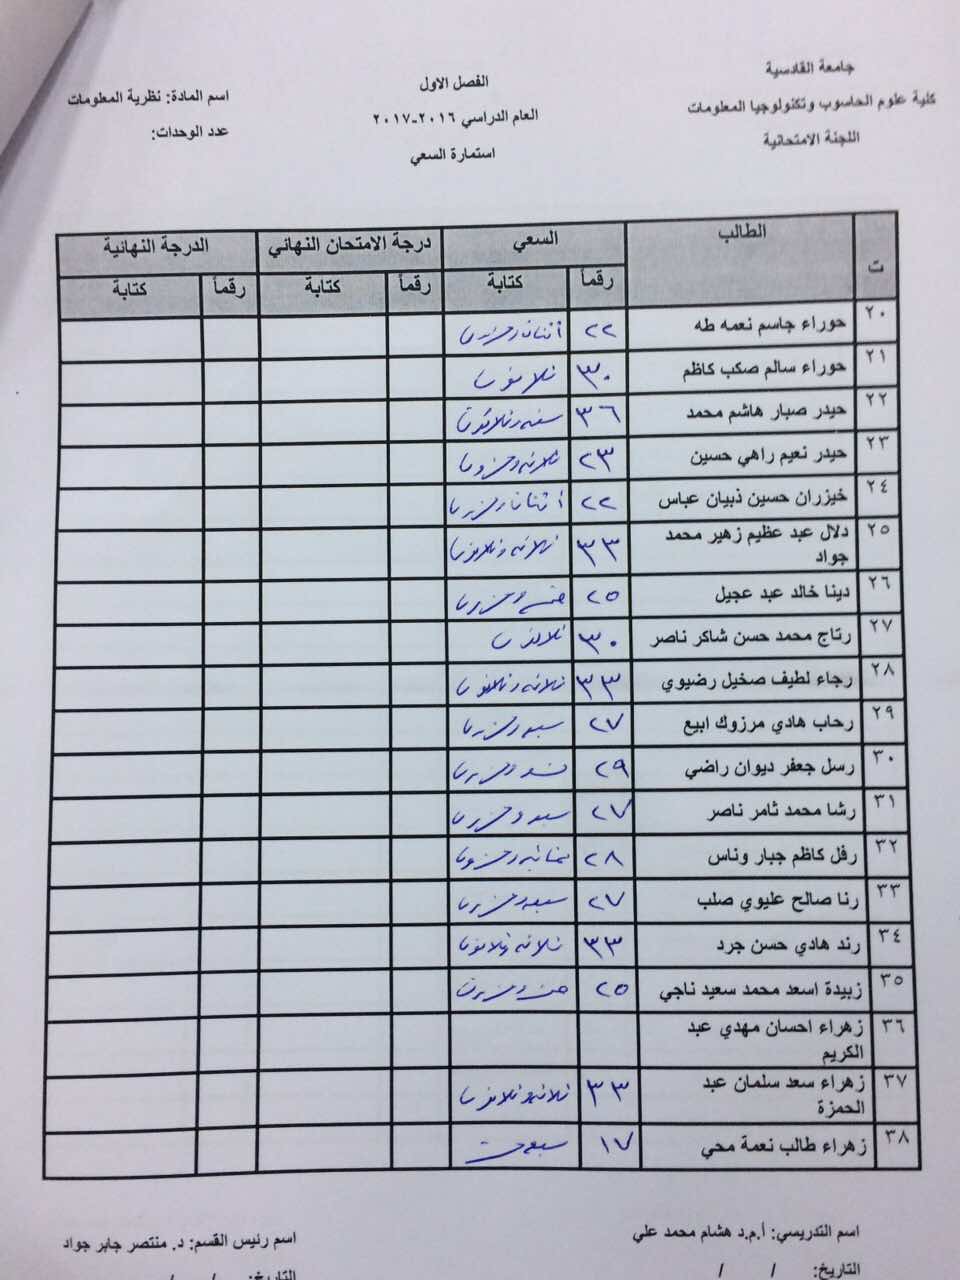 جامعة القادسية
كلية علوم الحاسوب وتكنولوجيا المعلومات
اللجنة الامتحانية
الفصل الاول
العام الدراسي ٢٠١٦-٢٠١٧
استمارة السعي
اسم المادة: نظرية المعلومات
عدد الوحدات:
ت الطالب السعي درجة الامتحان النهائي الدرجة النهائية
رقماً كتابة رقماً كتابة رقماً كتابة
٢٠ حوراء جاسم نعمه طه ٢٢ اثنان وعشرون
٢١ حوراء سالم صكب كاظم ٣٠ ثلاثون
٢٢ حيدر صبار هاشم محمد ٣٦ ستة وثلاثون
٢٣ حيدر نعيم راهي حسين ٢٣ ثلاثة وعشرون
٢٤ خيزران حسين ذبيان عباس ٢٢ اثنان وعشرون
٢٥ دلال عبد عظيم زهير محمد جواد ٣٣ ثلاثة وثلاثون
٢٦ دينا خالد عبد عجيل ٢٥ خمسة وعشرون
٢٧ رتاج محمد حسن شاكر ناصر ٣٠ ثلاثون
٢٨ رجاء لطيف صخيل رضيوي ٣٣ ثلاثة وثلاثون
٢٩ رحاب هادي مرزوك ابيع ٢٧ سبعة وعشرون
٣٠ رسل جعفر ديوان راضي ٢٩ تسعة وعشرون
٣١ رشا محمد ثامر ناصر ٢٧ سبعة وعشرون
٣٢ رفل كاظم جبار وناس ٢٨ ثمانية وعشرون
٣٣ رنا صالح عليوي صلب ٢٧ سبعة وعشرون
٣٤ رند هادي حسن جرد ٣٣ ثلاثة وثلاثون
٣٥ زبيدة اسعد محمد سعيد ناجي ٢٥ خمسة وعشرون
٣٦ زهراء احسان مهدي عبد الكريم
٣٧ زهراء سعد سلمان عبد الحمزة ٣٣ ثلاثة وثلاثون
٣٨ زهراء طالب نعمة محي ١٧ سبعة عشر
اسم التدريسي: أ.م.د هشام محمد علي
التاريخ: / /
اسم رئيس القسم: د. منتصر جابر جواد
التاريخ: / /